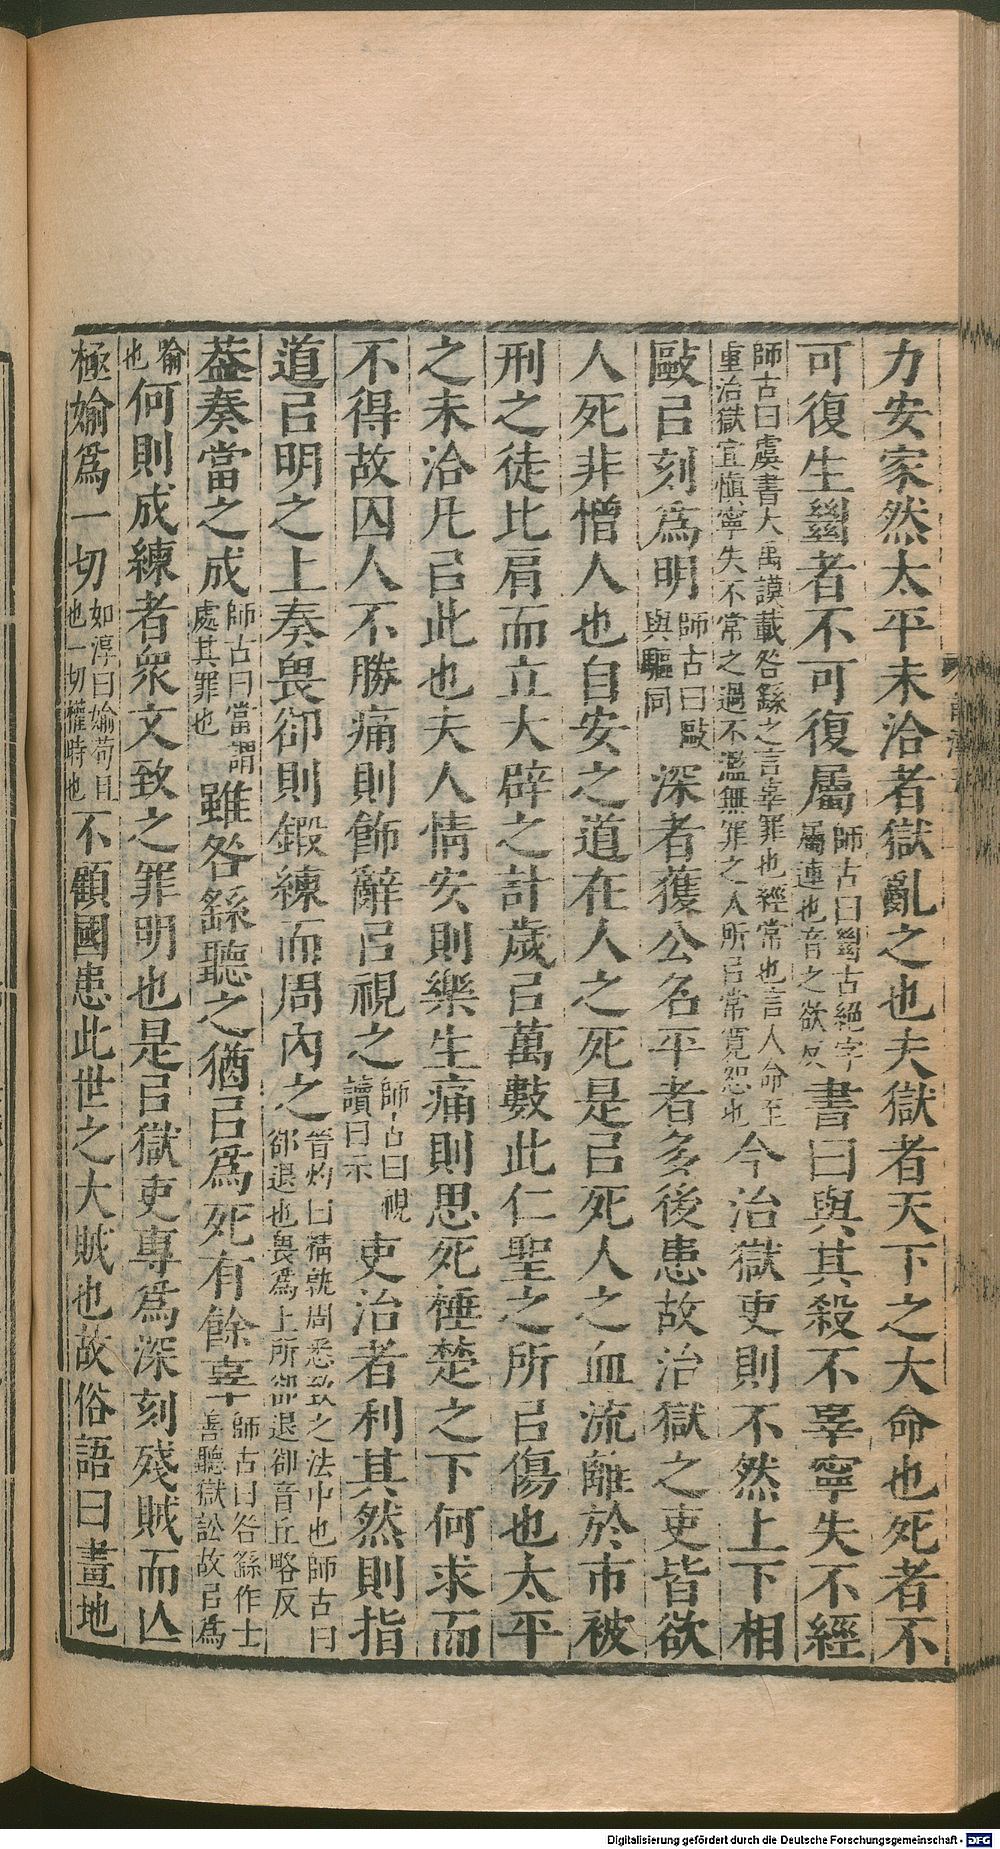 力安家然太平未洽者獄亂之也夫獄者天下之大命也死者不
可復生㡭者不可復屬師古曰㡭古絕字屬連也音之欲反書曰與其殺不辜寧失不經
師古曰虞書大禹謨載咎繇之言辜罪也經常也言人命至重治獄宜慎寧失不常之過不濫無罪之人所㠯常寬恕也今治獄吏則不然上下相
敺㠯刻爲明師古曰敺與驅同深者獲公名平者多後患故治獄之吏皆欲
人死非憎人也自安之道在人之死是㠯死人之血流離於市被
刑之徒比肩而立大辟之計歲㠯萬數此仁聖之所㠯傷也太平
之未洽凡㠯此也夫人情安則樂生痛則思死棰楚之下何求而
不得故囚人不勝痛則飾辭㠯視之師古曰視讀曰示吏治者利其然則指
道㠯明之上奏畏卻則鍛練而周內之晉灼曰精孰周悉致之法中也師古曰卻退也畏爲上所卻退卻音丘略反
葢奏當之成師古曰當謂處其罪也雖咎繇聽之猶㠯爲死有餘辜師古曰咎繇作士善聽獄訟故㠯爲
喻也何則成練者衆文致之罪明也是㠯獄吏專爲深刻殘賊而亾
極媮爲一切如淳曰媮苟且也一切權時也不顧國患此世之大賊也故俗語曰畫地
Digitalisierung gefördert durch die Deutsche Forschungsgemeinschaft - DFG